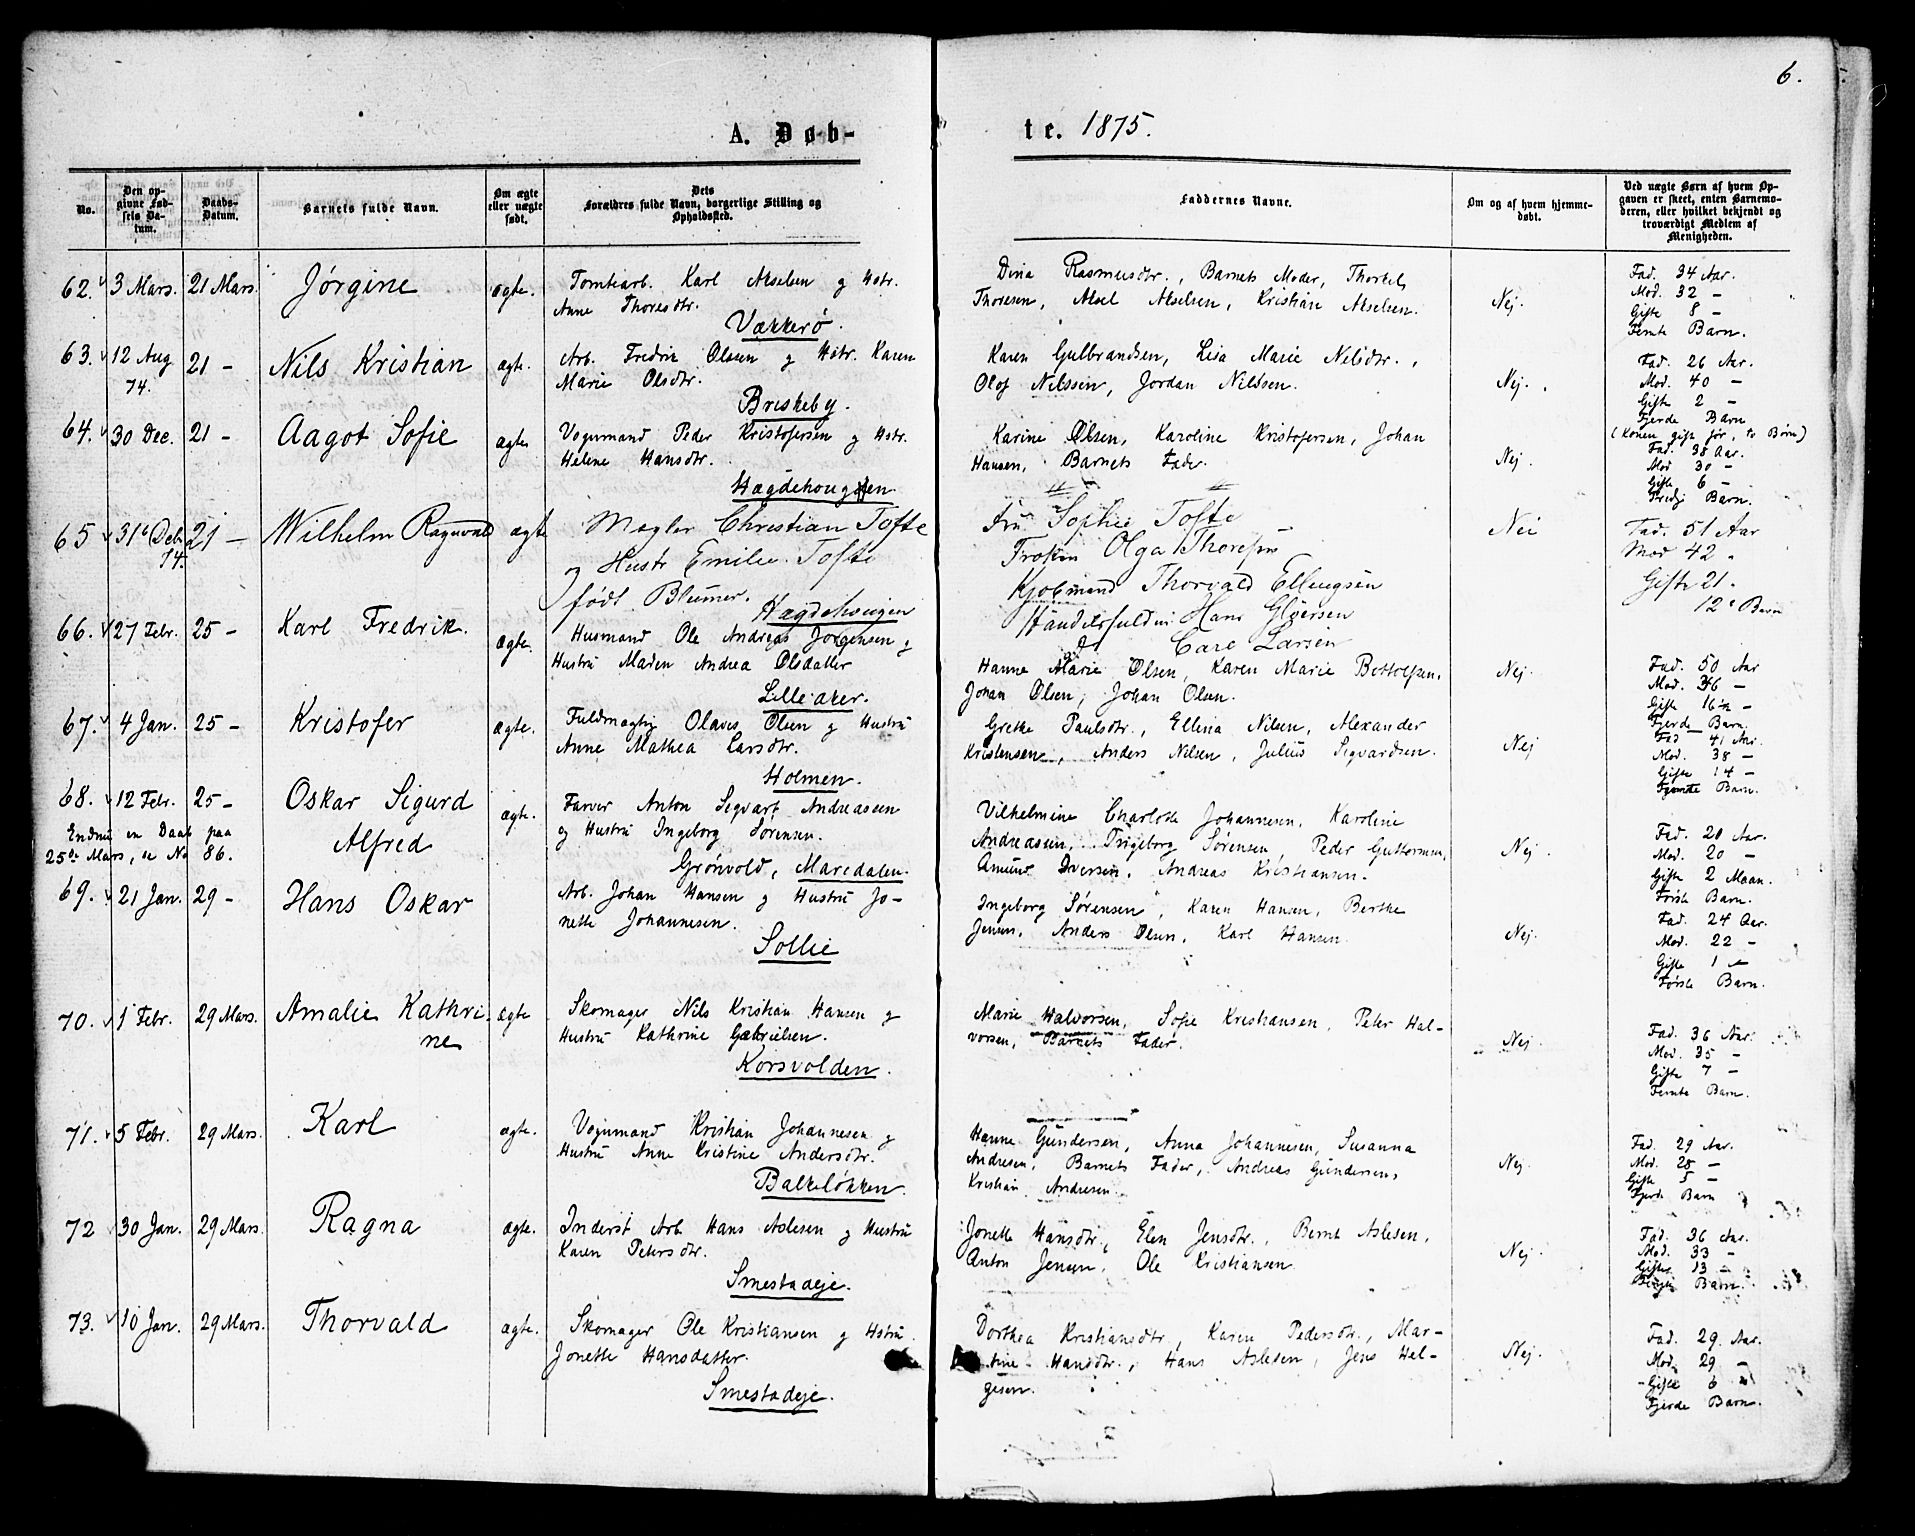 6.
A. Døb-
te. 1875.
No.
Den op-
givne Fød-
sels Da-
tum.
Daabs-
Datum.
Barnets fulde Navn.
Om ægte
eller uægte
født.
Dets
Forældres fulde Navn, borgerlige Stilling og
Opholdssted.
Faddernes Navne.
Om og af hvem hjemme-
døbt.
Ved uægte Børn af hvem Op-
gaven er skeet, enten Barnemo-
deren, eller hvilket bekjendt og
troværdigt Medlem af
Menigheden.
62. 3 Mars. 21 Mars. Jørgine ægte.
Tomtearb. Karl Akselsen og Hstr.
Anne Thoresdtr.
Vækkerø.
Dina Rasmusdtr., Barnets Moder, Thorkel
Thoresen, Aksel Akselsen, Kristian Akselsen.
Nej.
Fad. 34 Aar.
Mod. 32 -
Gifte 8 -
Femte Barn.
63. 12 Aug 21 - Nils Kristian ægte.
74.
Arb. Fredrik Olssen og Hstr. Karen
Marie Olsdtr.
Briskeby.
Karen Gulbrandsen, Lisa Marie Nilsdtr.,
Olof Nilssen, Jordan Nilssen.
Nej.
Fad. 26 Aar.
Mod. 40 -
Gifte 2 -
Fjerde Barn
(Konen gift før, to Børn)
64. 30 Dec. 21 - Aagot Sofie ægte
Vognmand Peder Kristofersen og Hstr.
Helene Hansdtr.
Hægdehougen
Karine Olsen, Karoline Kristofersen, Johan
Hansen, Barnets Fader.
Nej.
Fad. 38 Aar.
Mod 30 -
Gifte 6 -
Tredje Barn.
65 31te Deb. 21 - Wilhelm Ragnvald ægte
74.
Megler Christian Tofte
og Hustr Emilie Tofte
født Blumer.
Hægdehougen
Fru Sophie Tofte
Frøken Olga Thoresen
Kjøbmand Thorvald Ellingsen
Handelsfuldm: Hans Gløersen
og Carl Larsen
Nei
Fad. 51 Aar
Mod 42 "
Gifte 21.
12te Barn
66. 27 Febr. 25 - Karl Fredrik. ægte.
Husmand Ole Andreas Jørgensen og
Hustru Maren Andrea Olsdatter
Lilleaker.
Hanne Marie Olsen, Karen Marie Bottolfsen,
Johan Olsen, Johan Olsen.
Nej.
Fad. 50 Aar
Mod. 36 -
Gifte 16½ -
Fjerde Barn.
67. 4 Jan. 25 - Kristofer ægte.
Fuldmægtig Olaves Olsen og Hustru
Anne Mathea Larsdtr.
Holmen.
Grethe Paulsdtr., Ellina Nilsen, Alexander
Kristensen, Anders Nilsen, Julius Sigvardsen.
Nej
Fad 41 Aar.
Mod. 38 -
Gifte 14 -
Femte Barn.
68. 12 Febr. 25 - Oskar Sigurd ægte.
Alfred
Endnu en Daab paa
25de Mars, se No 86.
Farver Anton Segvart Andreassen
og Hustru Ingeborg Sørensen.
Grønvold, Maredalen.
Vilhelmine Charlotte Johannesen, Karoline
Andreassen, Ingeborg Sørensen, Peder Guttormsen,
Amund Iversen, Andreas Kristiansen.
Nej.
Fad. 20 Aar.
Mod. 20 -
Gifte 2 Maan.
Første Barn.
69. 21 Jan. 29 - Hans Oskar
Arb. Johan Hansen og Hustru Jo-
nette Johannesen.
Sollie
Ingeborg Sørensen, Karen Hansen, Berthe
Jensen, Anders Olsen, Karl Hansen.
Nej.
Fad. 24 Aar.
Mod. 22 -
Gifte 1 -
Første Barn.
70. 1 Febr. 29 Mars. Amalie Kathri- ægte
ne
Skomager Nils Kristian Hansen og
Hustru Kathrine Gabrielsen.
Korsvolden.
Marie Halvorsen, Sofie Kristiansen, Peter Hal-
vorsen, Barnets Fader.
Nej.
Fad. 36 Aar.
Mod. 35 -
Gifte 7 -
Femte Barn.
71. 5 Febr. 29 Mars. Karl ægte.
Vognmand Kristian Johannesen og
Hustru Anne Kristine Andersdtr.
Balkeløkken.
Hanne Gundersen, Anna Johannesen, Susanna
Andresen, Barnets Fader, Andreas Gundersen,
Kristian Andresen.
Nej
Fad. 29 Aar.
Mod. 28 -
Gifte 5 -
Fjerde Barn
72 30 Jan. 29 Mars. Ragna ægte.
Inderst Arb. Hans Aslesen og Hustru
Karen Petersdtr.
Smestadeje.
Jonette Hansdtr., Elen Jensdtr., Bernt Aslesen,
Anton Jensen, Ole Kristiansen.
Nej.
Fad. 36 Aar.
Mod. 33 -
Gifte 13 -
Barn.
73. 10 Jan. 29 Mars. Thorvald ægte.
Skomager Ole Kristiansen og Hstru
Jonette Hansdatter.
Smestadeje.
Dorthea Kristiansdtr., Karen Pedersdtr., Mar-
tine Hansdtr., Hans Aslesen, Jens Hel-
gesen.
Nej.
Fad. 29. Aar.
Mod. 29 -
Gifte 6
Fjerde Barn.